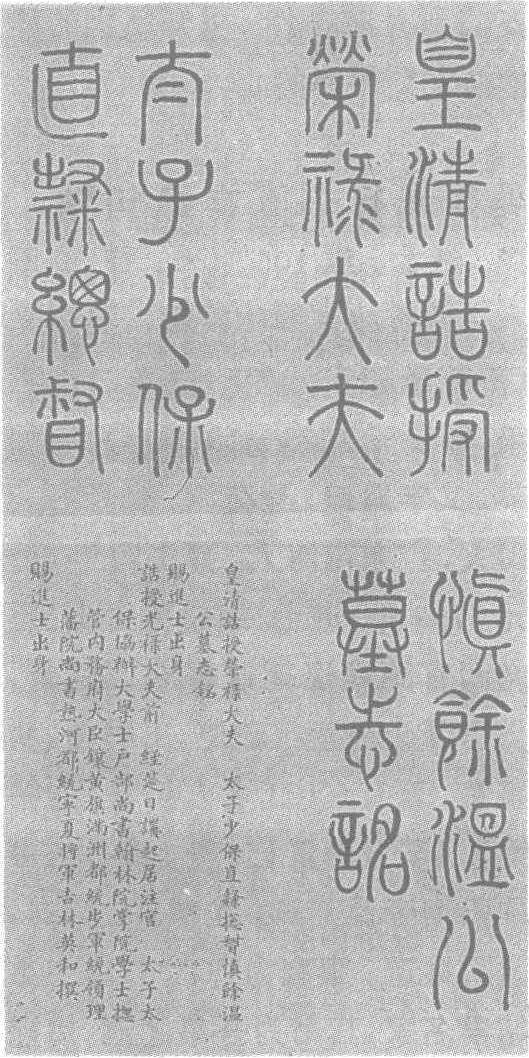 皇清誥授
榮祿大夫
太子少保
直隸總督
慎餘溫公
墓志銘
皇清誥授榮祿大夫 太子少保直隸揔督慎餘溫
公墓志銘
賜進士出身
誥授光祿大夫前 經筵日講起居注官 太子太
保協辦大學士戶部尚書翰林院掌院學士揔
管內務府大臣鑲黃旗滿洲都統步軍統領理
藩院尚書熱河都統寧夏將軍吉林英和撰
賜進士出身